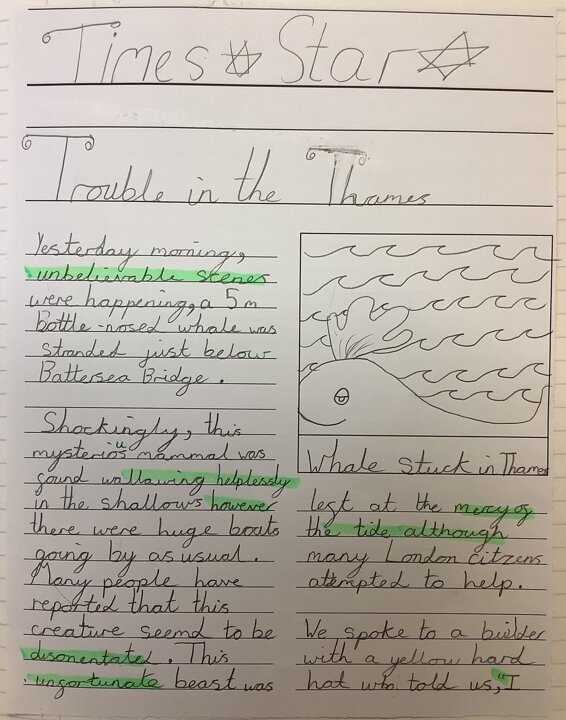 Times Star
Trouble in the Thames
Yesterday morning,
unbelievable scenes
were happening, a 5m
bottle-nosed whale was
stranded just below
Battersea Bridge.
Shockingly, this
mysterious mammal was
found wallowing helplessly
in the shallows however
there were huge boats
going by as usual.
Many people have
reported that this
creature seemd to be
disorientated. This
unfortunate beast was
Whale stuck in Thames
left at the mercy of
the tide although
many London citzens
attempted to help.
We spoke to a builder
with a yellow hard
hat who told us, "I